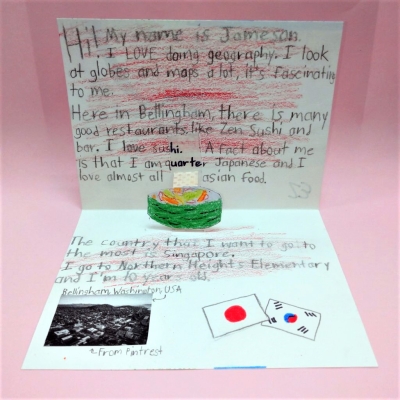 Hi! My name is Jameson.
I LOVE doing geography. I look
at globes and maps a lot, it's fascinating
to me.
Here in Bellingham, there is many
good restaurants like Zen Sushi and
bar. I love sushi. A fact about me
is that I am quarter Japanese and I
love almost all asian food.
The country that I want to go to
the most is Singapore.
I go to Northern Heights Elementary
and I'm 10 years old.
Bellingham, Washington, USA
From Pintrest